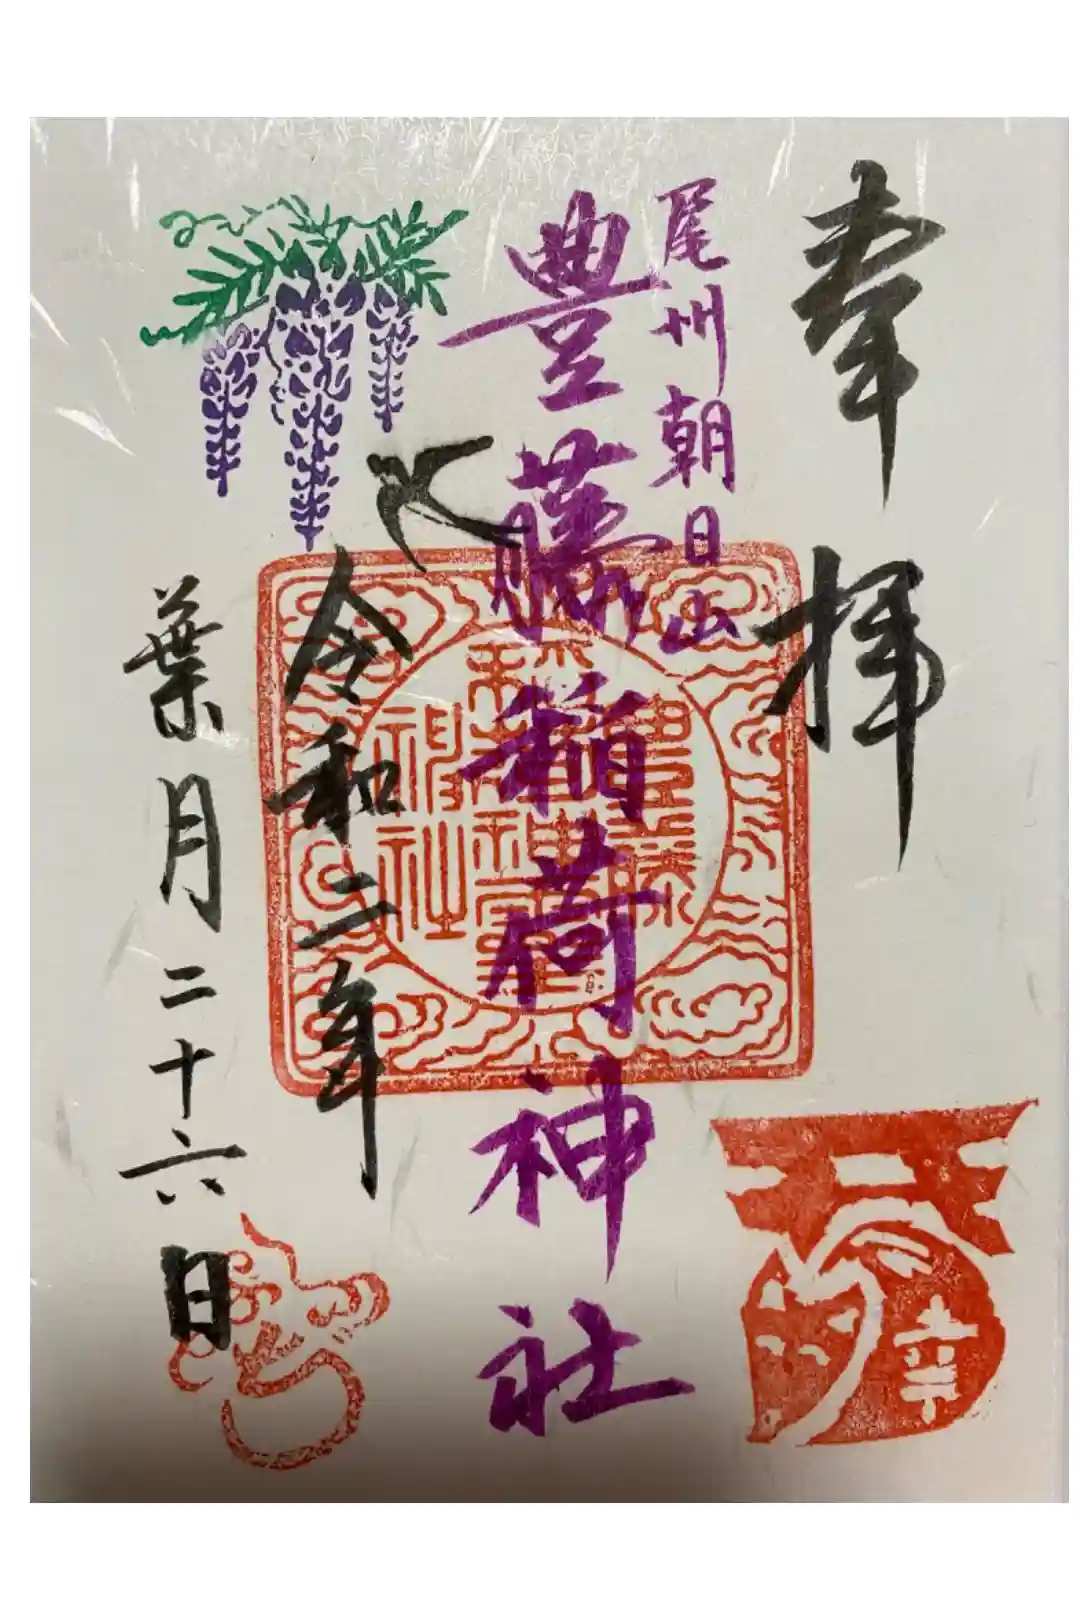 奉拝
尾州朝日山
豊藤稲荷神社
令和二年
葉月二十六日
幸